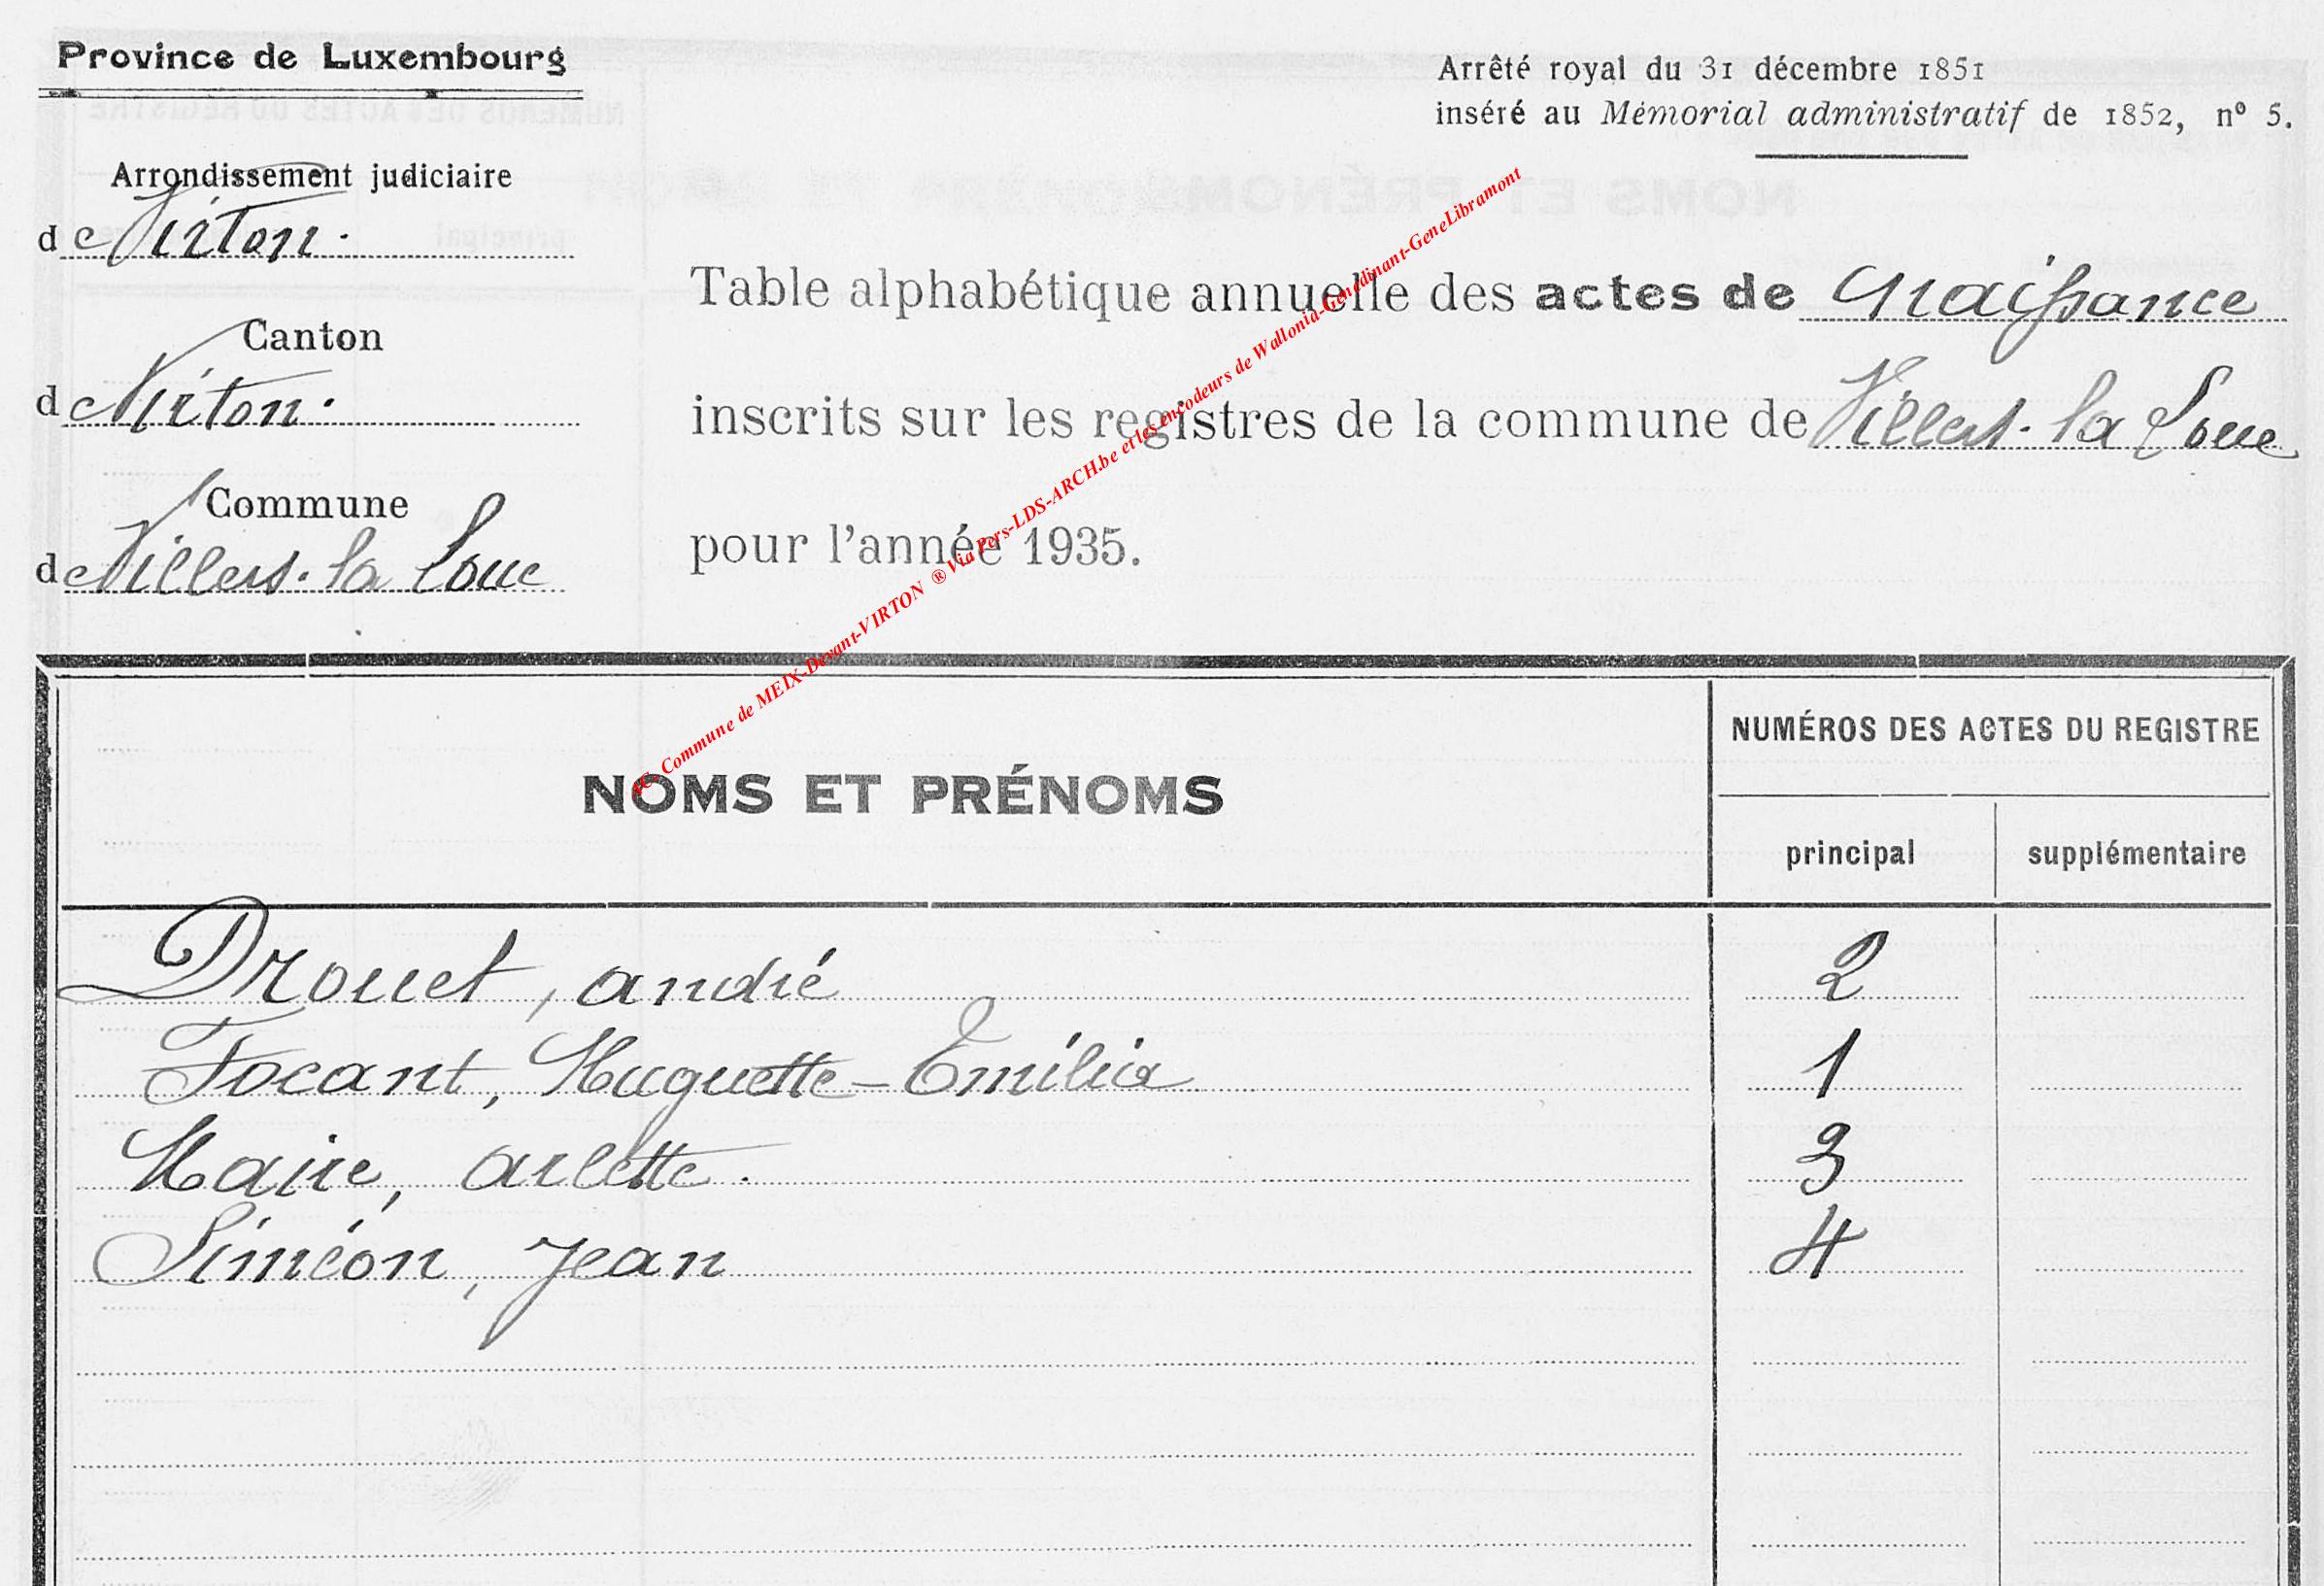 Province de Luxembourg
Arrêté royal du 31 décembre 1851
inséré au Mémorial administratif de 1852, nº 5.
Arrondissement judiciaire
de Virton.
Canton
de Virton.
Commune
de Villers-la Loue
Table alphabétique annuelle des actes de Naissance
inscrits sur les registres de la commune de Villers-la Loue
pour l'année 1935.
Commune de MEIX-Devant-VIRTON ® Via Pers-LDS-ARCH.be et les encodeurs de Wallonia-Genedinant-GeneLibramont
NOMS ET PRÉNOMS
NUMÉROS DES ACTES DU REGISTRE
principal supplémentaire
Drouet, André 2
Focant, Huguette-Emilia 1
Haire, Arlette. 3
Siméon, Jean 4